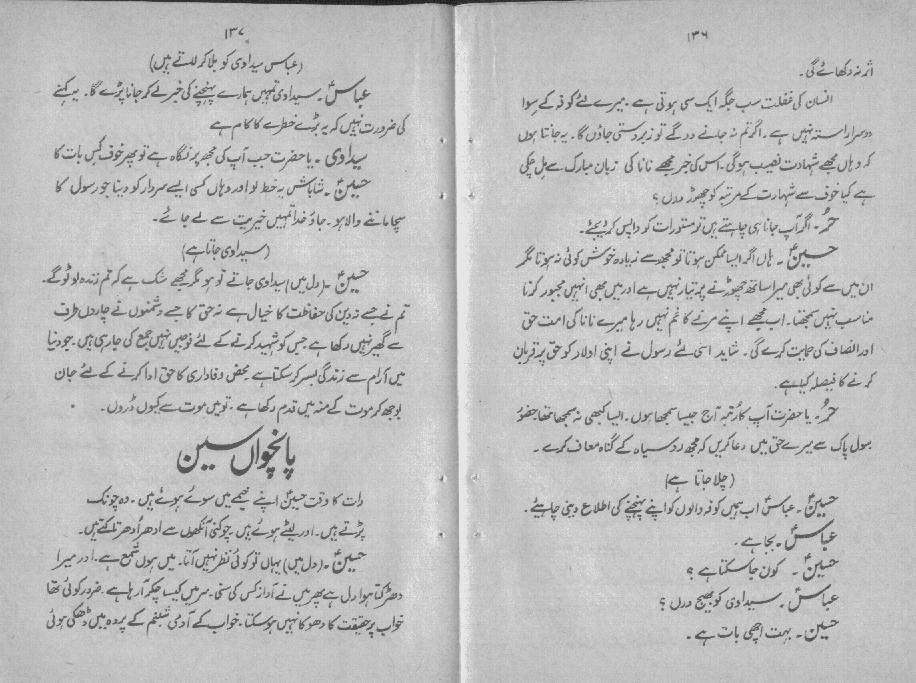 ۱۳۶
اثر نہ دکھائے گی۔
انسان کی غفلت سب جگہ ایک سی ہوتی ہے۔ میرے لئے کوفہ کے سوا
دوسرا راستہ نہیں ہے۔ اگر تم نہ جانے دو گے تو زبردستی جاؤں گا۔ یہ جانتا ہوں
کہ وہاں مجھے شہادت نصیب ہوگی۔ اس کی خبر مجھے نانا کی زبان مبارک سے مل چکی
ہے کیا خوف سے شہادت کے مرتبہ کو چھوڑ دوں؟
حُر۔ اگر آپ جانا ہی چاہتے ہیں تو مستورات کو واپس کر دیجئے۔
حسینؑ۔ ہاں اگر ایسا ممکن ہوتا تو مجھ سے زیادہ خوش کوئی نہ ہوتا مگر
ان میں سے کوئی بھی میرا ساتھ چھوڑنے پر تیار نہیں ہے اور میں بھی انہیں مجبور کرنا
مناسب نہیں سمجھتا۔ اب مجھے اپنے مرنے کا غم نہیں رہا میرے نانا کی امت حق
اور انصاف کی حمایت کرے گی۔ شاید اسی لئے رسول نے اپنی اولاد کو حق پر قربان
کرنے کا فیصلہ کیا ہے۔
حُر۔ یا حضرت آپ کا رتبہ آج جیسا سمجھا ہوں۔ ایسا کبھی نہ سمجھا تھا حضورؐ
رسول پاک سے میرے حق میں دعا کریں کہ مجھ رو سیاہ کے گناہ معاف کرے۔
(چلا جاتا ہے)
حسینؑ۔ عباسؑ اب ہمیں کوفہ والوں کو اپنے پہنچنے کی اطلاع دینی چاہیئے۔
عباسؑ۔ بجا ہے۔
حسینؑ۔ کون جا سکتا ہے؟
عباسؑ۔ سیداوی کو بھیج دوں؟
حسین۔ بہت اچھی بات ہے۔
۱۳۷
(عباس سیداوی کو بلا کر لاتے ہیں)
عباسؑ۔ سیداوی تمہیں ہمارے پہنچنے کی خبر لے کر جانا پڑے گا۔ یہ کہنے
کی ضرورت نہیں کہ یہ بڑے خطرے کا کام ہے
سیداوی۔ یا حضرت جب آپ کی مجھ پر نگاہ ہے تو پھر خوف کس بات کا
حسینؑ۔ شاباش یہ خط لو اور وہاں کسی ایسے سردار کو دینا جو رسول کا
سچا ماننے والا ہو۔ جاؤ خدا تمہیں خیریت سے لے جائے۔
(سیداوی جاتا ہے)
حسینؑ۔ (دل میں) سیداوی جاتے تو ہو مگر مجھے شک ہے کہ تم زندہ لوٹو گے۔
تم نے جسے نہ دین کی حفاظت کا خیال ہے نہ حق کا جسے دشمنوں نے چاروں طرف
سے گھیر نہیں رکھا ہے جس کو شہید کرنے کے لئے فوجیں نہیں جمع کی جا رہی ہیں۔ جو دنیا
میں آرام سے زندگی بسر کر سکتا ہے محض وفاداری کا حق ادا کرنے کے لئے جان
بوجھ کر موت کے منہ میں قدم رکھا ہے۔ تو میں موت سے کیوں ڈروں۔
پانچواں سین
رات کا وقت حسینؑ اپنے خیمے میں سوئے ہوئے ہیں۔ وہ چونک
پڑتے ہیں۔ اور لیٹے ہوئے ہیں۔ چوکنی آنکھوں سے ادھر اُدھر تاکتے ہیں۔
حسینؑ۔ (دل میں) یہاں تو کوئی نظر نہیں آتا۔ میں ہوں شمع ہے۔ اور میرا
دھڑکتا ہوا دل ہے پھر میں نے آواز کس کی سنی۔ سر میں کیسا چکر آ رہا ہے۔ ضرور کوئی تھا
خواب پر حقیقت کا دھوکا نہیں ہو سکتا۔ خواب کے آدمی شبنم کے پردہ میں ڈھکی ہوئی